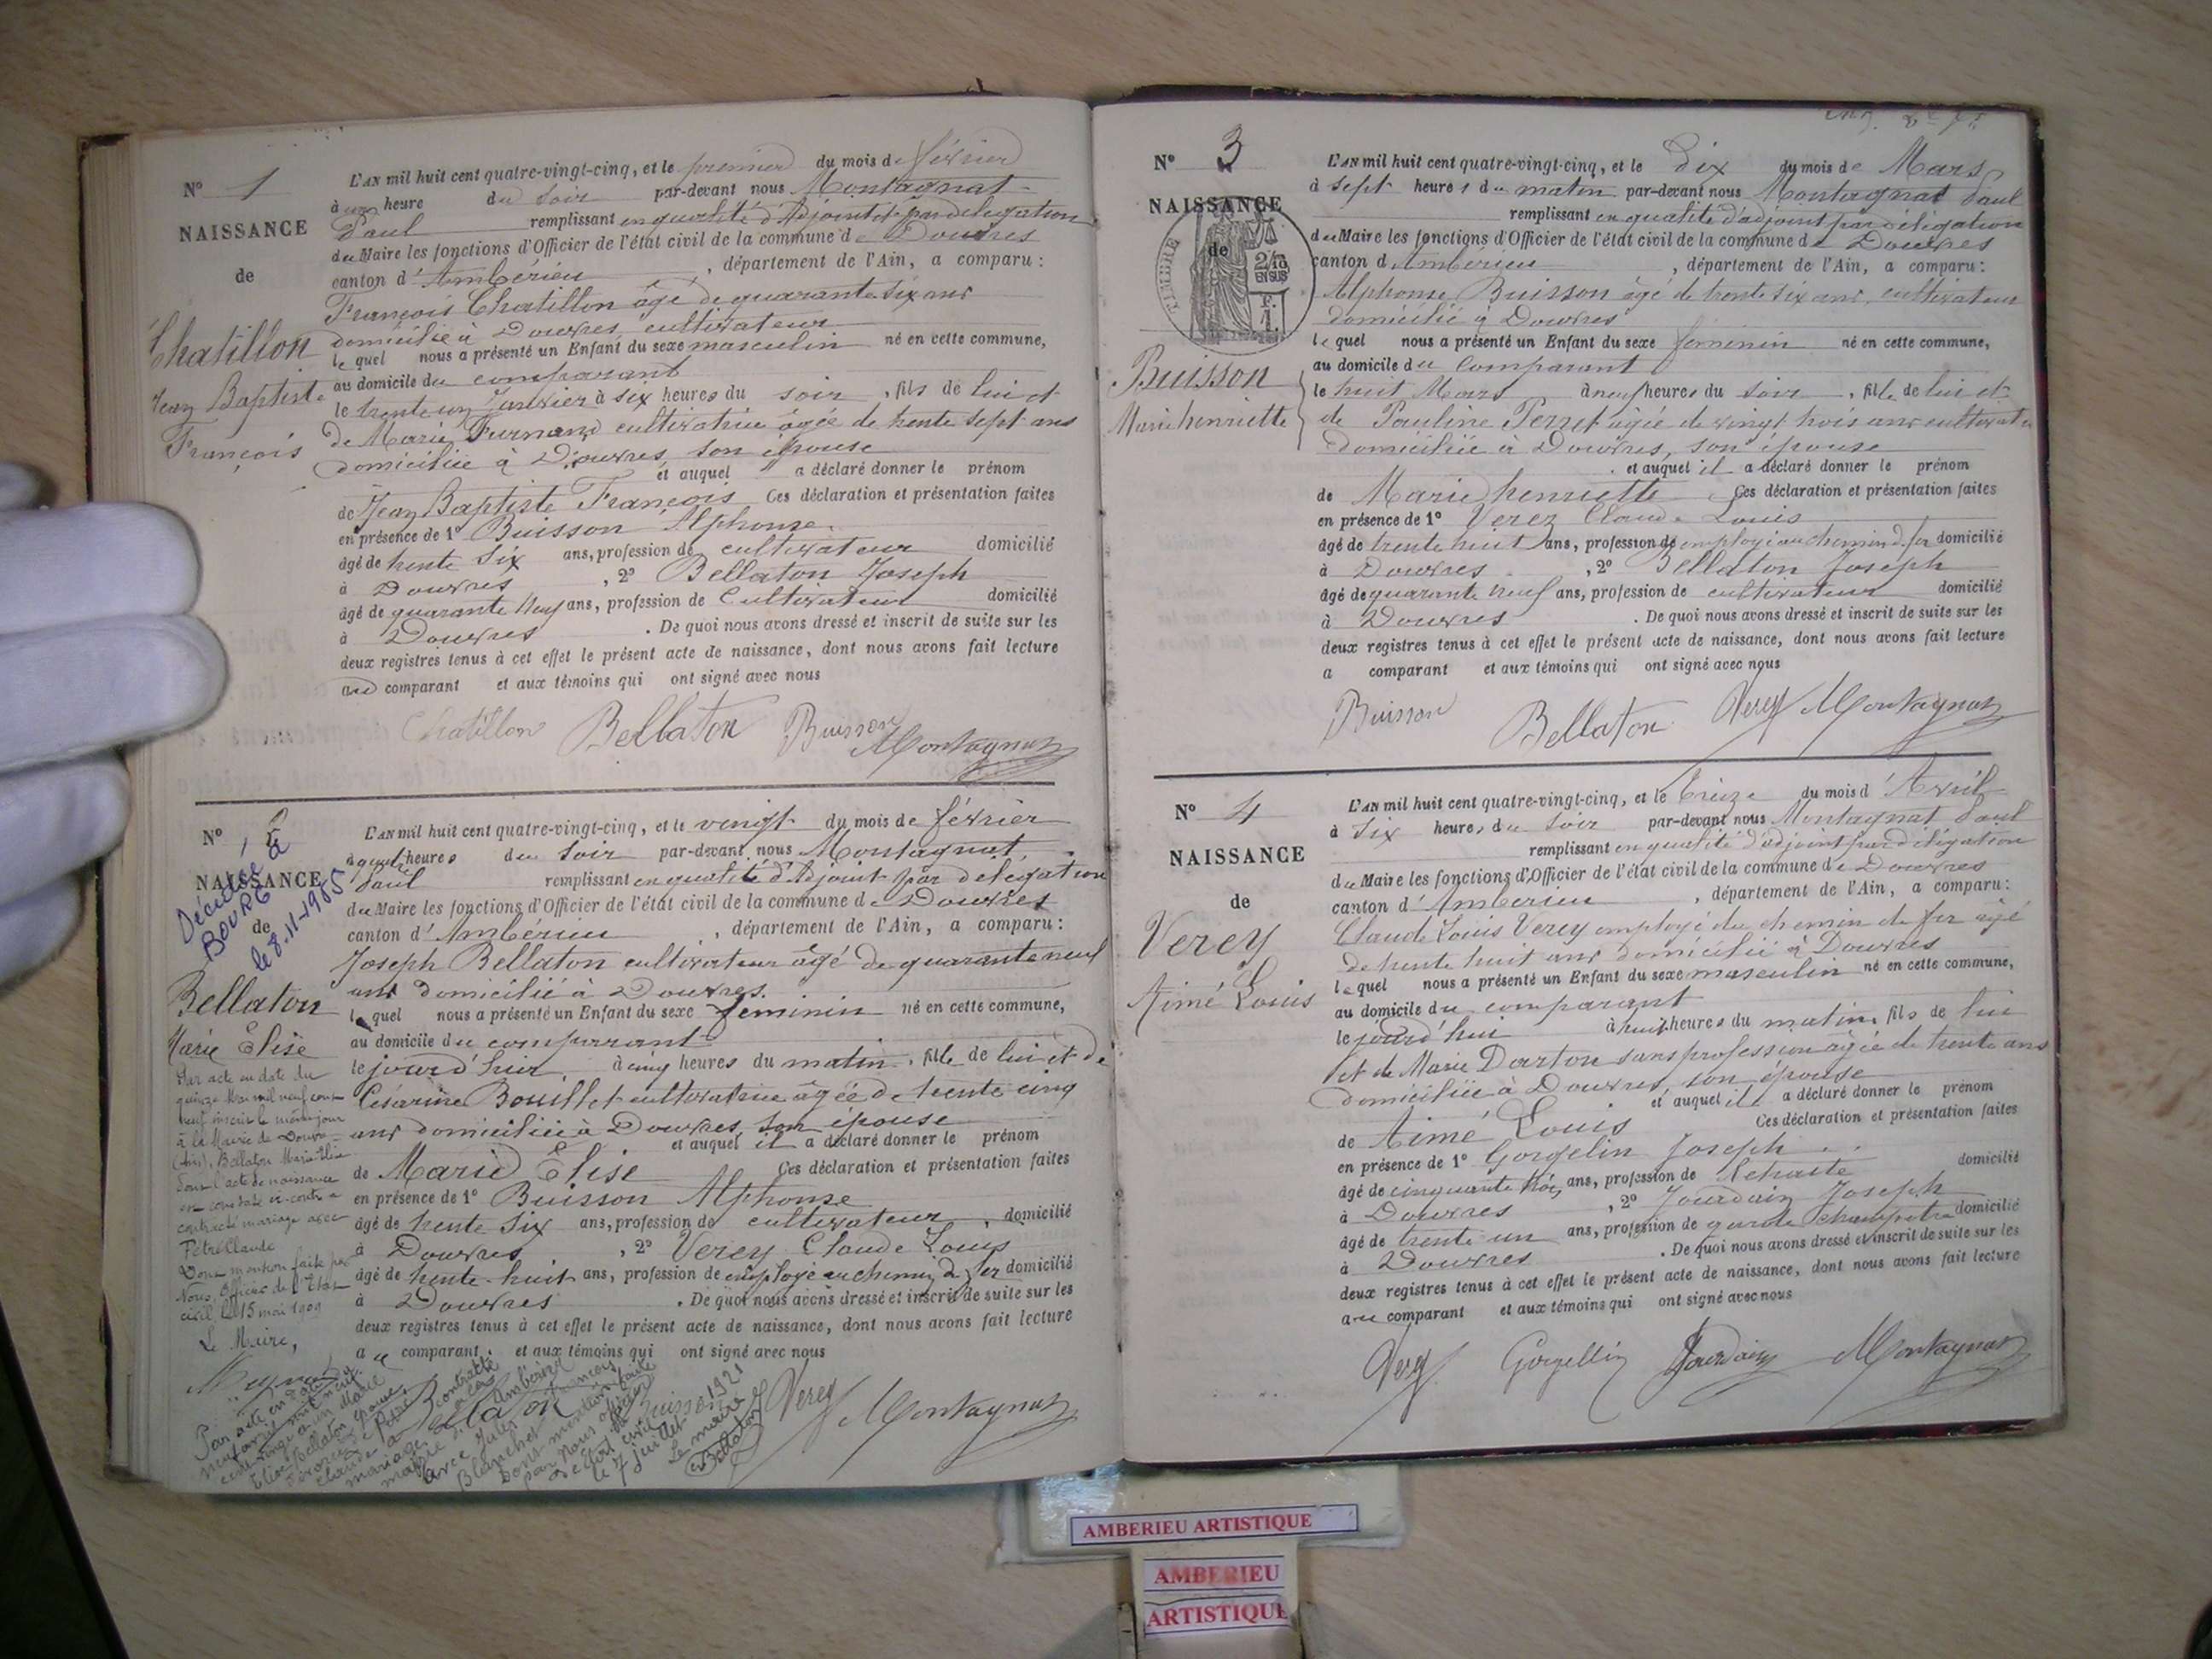 N° 1
NAISSANCE
de
Chatillon
Jean Baptiste
François
L'AN mil huit cent quatre-vingt-cinq, et le premier du mois de février
à une heure du soir par-devant nous Montagnat
Paul remplissant en qualité d'Adjoint et par délégation
du Maire les fonctions d'Officier de l'état civil de la commune de Douvres
canton d'Ambérieu, département de l'Ain, a comparu:
François Chatillon âgé de quarante six ans
domicilié à Douvres, cultivateur
lequel nous a présenté un Enfant du sexe masculin né en cette commune,
au domicile du comparant
le trente un Janvier à six heures du soir, fils de lui et
de Marie Furnand cultivatrice âgée de trente sept ans
domiciliée à Douvres, son épouse
et auquel il a déclaré donner le prénom
de Jean Baptiste François Ces déclaration et présentation faites
en présence de 1° Buisson Alphonse
âgé de trente six ans, profession de cultivateur domicilié
à Douvres, 2° Bellaton Joseph
âgé de quarante neuf ans, profession de Cultivateur domicilié
à Douvres. De quoi nous avons dressé et inscrit de suite sur les
deux registres tenus à cet effet le présent acte de naissance, dont nous avons fait lecture
au comparant et aux témoins qui ont signé avec nous
Chatillon Bellaton Buisson
Montagnat
N° 2
NAISSANCE
de
Décédée à
BOURG
le 8.11-1965
Bellaton
Marie Elise
Par acte en date du
quinze Mai mil neuf cent
neuf inscrit le même jour
à la Mairie de Douvres
(Ain), Bellaton Marie Elise
dont l'acte de naissance
est constaté ci-contre a
contracté mariage avec
Pétré Claude
Dont mention faite par
Nous, Officier de l'Etat
civil, le 15 mai 1909
Le Maire,
L'AN mil huit cent quatre-vingt-cinq, et le vingt du mois de février
à quatre heures du soir par-devant nous Montagnat
Paul remplissant en qualité d'Adjoint par délégation
du Maire les fonctions d'Officier de l'état civil de la commune de Douvres
canton d'Ambérieu, département de l'Ain, a comparu:
Joseph Bellaton cultivateur âgé de quarante neuf
ans domicilié à Douvres.
lequel nous a présenté un Enfant du sexe féminin né en cette commune,
au domicile du comparant
le jourd'hui, à cinq heures du matin, fille de lui et de
Césarine Bouillet cultivatrice âgée de trente cinq
ans domiciliée à Douvres, son épouse
et auquel il a déclaré donner le prénom
de Marie Elise Ces déclaration et présentation faites
en présence de 1° Buisson Alphonse
âgé de trente six ans, profession de cultivateur, domicilié
à Douvres, 2° Verey Claude Louis
âgé de trente-huit ans, profession de employé au chemin de fer domicilié
à Douvres. De quoi nous avons dressé et inscrit de suite sur les
deux registres tenus à cet effet le présent acte de naissance, dont nous avons fait lecture
au comparant et aux témoins qui ont signé avec nous
Bellaton Buisson Verey
Montagnat
Par acte en date du
Elise Bellaton épouse
mariage
avec Jules François
Blanchet
Dont mention faite
par Nous officier
de l'état civil
le 7 juillet 1921
Le maire
Bellaton
N° 3
NAISSANCE
de
TIMBRE
2/10
EN SUS
Buisson
Marie henriette
L'AN mil huit cent quatre-vingt-cinq, et le dix du mois de Mars
à sept heures du matin par-devant nous Montagnat Paul
remplissant en qualité d'adjoint par délégation
du Maire les fonctions d'Officier de l'état civil de la commune de Douvres
canton d'Amberieu, département de l'Ain, a comparu:
Alphonse Buisson âgé de trente six ans, cultivateur
domicilié à Douvres
lequel nous a présenté un Enfant du sexe féminin né en cette commune,
au domicile du Comparant
le huit Mars à neuf heures du soir, fille de lui et
de Pauline Perret âgée de vingt trois ans cultivatrice
domiciliée à Douvres, son épouse
. et auquel il a déclaré donner le prénom
de Marie henriette Ces déclaration et présentation faites
en présence de 1° Verey Claude Louis
âgé de trente huit ans, profession de employé au chemin de fer domicilié
à Douvres, 2° Bellaton Joseph
âgé de quarante neuf ans, profession de cultivateur domicilié
à Douvres. De quoi nous avons dressé et inscrit de suite sur les
deux registres tenus à cet effet le présent acte de naissance, dont nous avons fait lecture
a comparant et aux témoins qui ont signé avec nous
Buisson Bellaton Verey Montagnat
N° 4
NAISSANCE
de
Verey
Aimé Louis
L'AN mil huit cent quatre-vingt-cinq, et le treize du mois d'Avril
à six heures du soir par-devant nous Montagnat Paul
remplissant en qualité d'adjoint par délégation
du Maire les fonctions d'Officier de l'état civil de la commune de Douvres
canton d'Amberieu, département de l'Ain, a comparu:
Claude Louis Verey employé du chemin de fer âgé
de trente huit ans domicilié à Douvres
lequel nous a présenté un Enfant du sexe masculin né en cette commune,
au domicile du comparant
le jourd'hui à huit heures du matin, fils de lui
et de Marie Darton sans profession âgée de trente ans
domiciliée à Douvres, son épouse
et auquel il a déclaré donner le prénom
de Aimé Louis Ces déclaration et présentation faites
en présence de 1° Gorgelin Joseph
âgé de cinquante trois ans, profession de Retraité domicilié
à Douvres, 2° Jourdain Joseph
âgé de trente un ans, profession de garde champêtre domicilié
à Douvres. De quoi nous avons dressé et inscrit de suite sur les
deux registres tenus à cet effet le présent acte de naissance, dont nous avons fait lecture
au comparant et aux témoins qui ont signé avec nous
Verey Gorgellin Jourdain Montagnat
AMBERIEU ARTISTIQUE
AMBERIEU
ARTISTIQUE